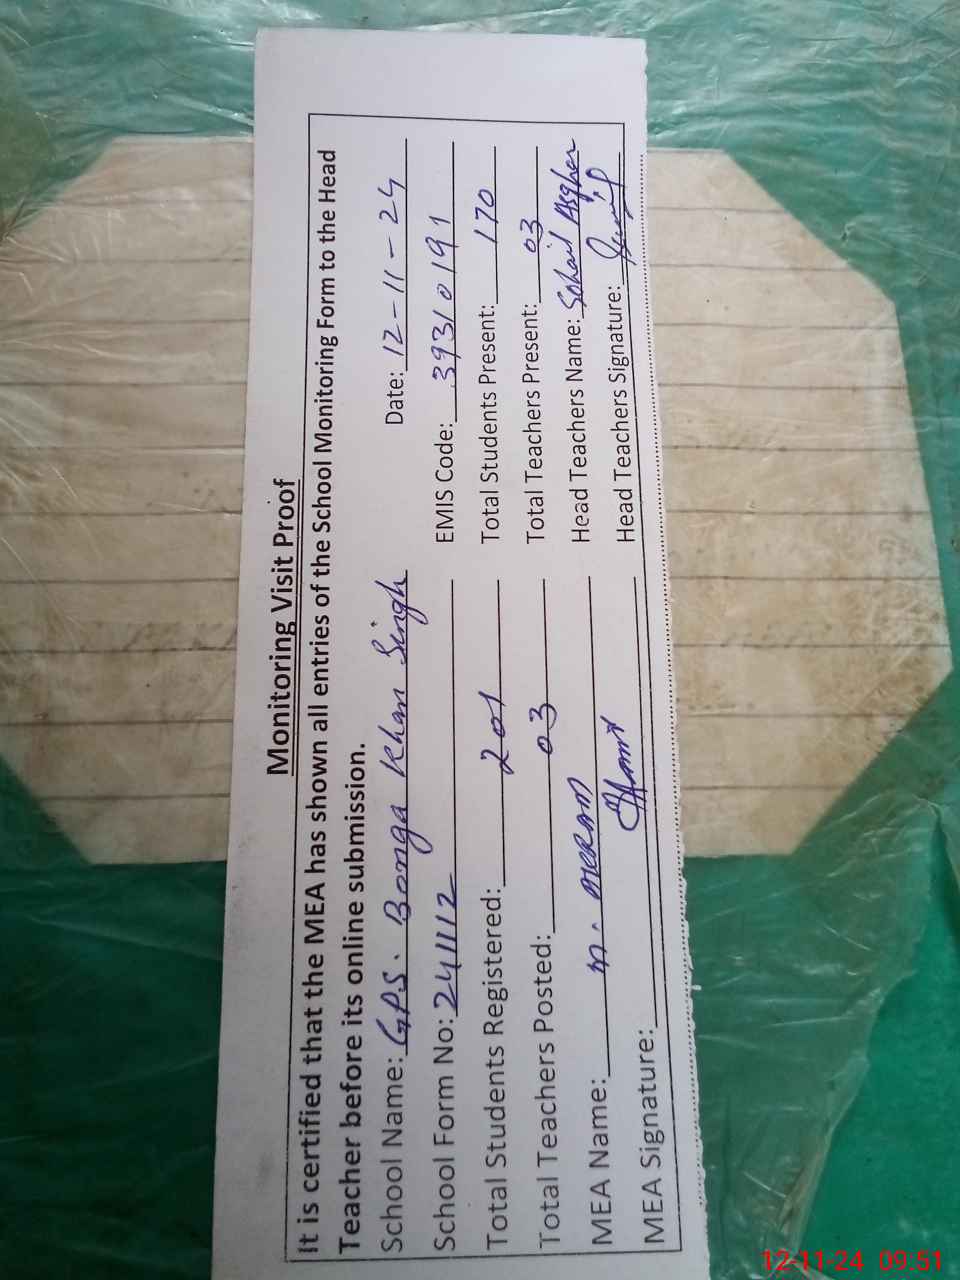 Monitoring Visit Proof
It is certified that the MEA has shown all entries of the School Monitoring Form to the Head
Teacher before its online submission.
School Name: GPS. Bonga Khan Singh Date: 12-11-24
School Form No: 241112 EMIS Code: 39310191
Total Students Registered: 201 Total Students Present: 170
Total Teachers Posted: 03 Total Teachers Present: 03
MEA Name: M. AKRAM Head Teachers Name: Sohail Asghar
MEA Signature: Head Teachers Signature:
12-11-24 09:51